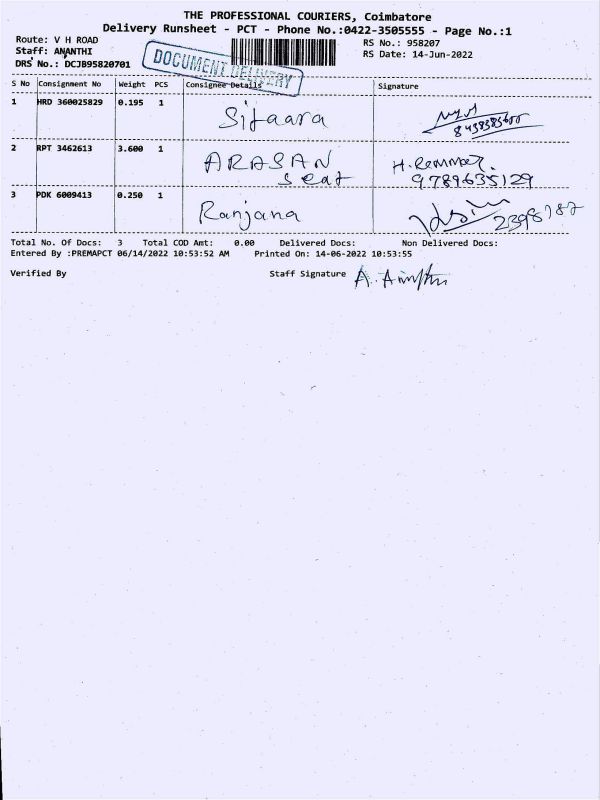 THE PROFESSIONAL COURIERS, Coimbatore
Delivery Runsheet - PCT - Phone No.:0422-3505555 - Page No.:1
Route: V H ROAD
Staff: ANANTHI
DRS No.: DCJB95820701
DOCUMENT DELIVERY
RS No.: 958207
RS Date: 14-Jun-2022
S No Consignment No Weight PCS Consignee Details Signature
1 HRD 360025829 0.195 1 Sitaara
2 RPT 3462613 3.600 1 ARASAN H.
Seat 9789635129
3 PDK 6009413 0.250 1 Ranjana 2398187
Total No. Of Docs: 3 Total COD Amt: 0.00 Delivered Docs: Non Delivered Docs:
Entered By :PREMAPCT 06/14/2022 10:53:52 AM Printed On: 14-06-2022 10:53:55
Verified By Staff Signature A.